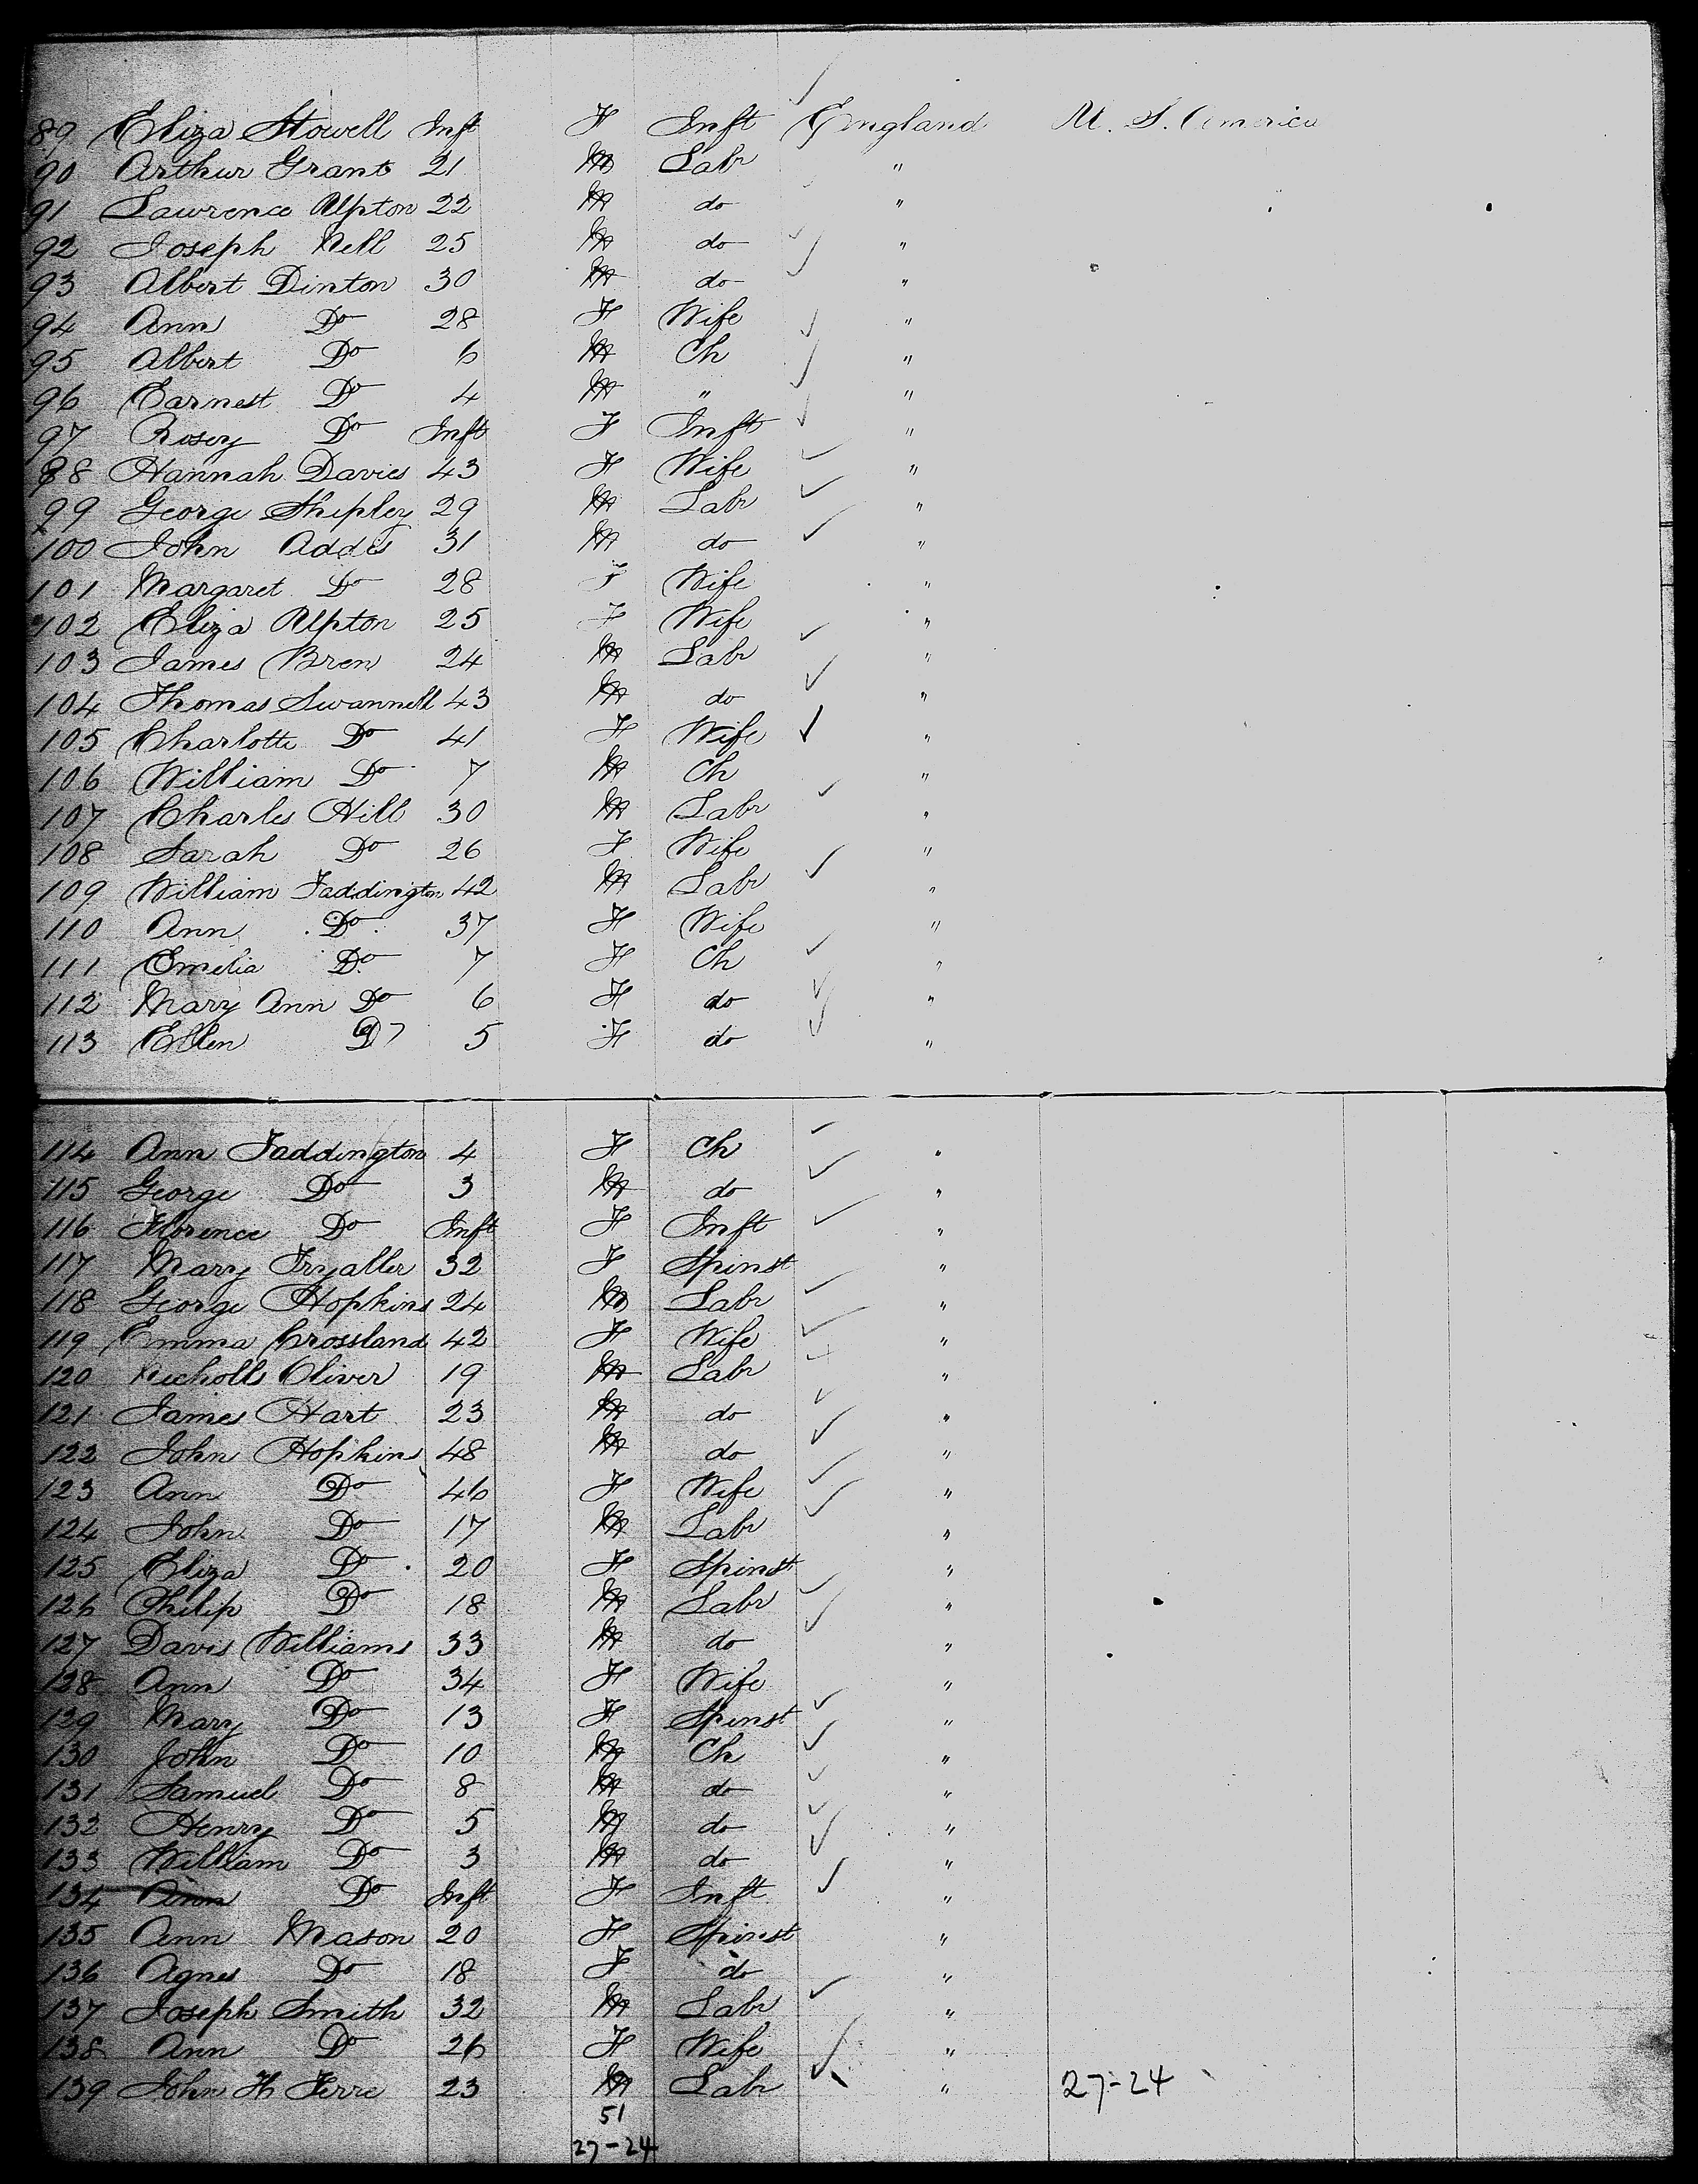 89 Eliza Stowell Inft F Inft England U. S. America
90 Arthur Grant 21 M Labr "
91 Lawrence Upton 22 M do "
92 Joseph Nell 25 M do "
93 Albert Dinton 30 M do "
94 Ann Do 28 F Wife "
95 Albert Do 6 M Ch "
96 Earnest Do 4 M " "
97 Rosey Do Inft F Inft "
98 Hannah Davies 43 F Wife "
99 George Shipley 29 M Labr "
100 John Addis 31 M do "
101 Margaret Do 28 F Wife "
102 Eliza Upton 25 F Wife "
103 James Bren 24 M Labr "
104 Thomas Swannell 43 M do "
105 Charlotte Do 41 F Wife "
106 William Do 7 M Ch "
107 Charles Hill 30 M Labr "
108 Sarah Do 26 F Wife "
109 William Faddington 42 M Labr "
110 Ann Do 37 F Wife "
111 Emelia Do 7 F Ch "
112 Mary Ann Do 6 F do "
113 Ellen Do 5 F do "
114 Ann Faddington 4 F Ch "
115 George Do 3 M do "
116 Florence Do Inft F Inft "
117 Mary Fryatler 32 F Spinst "
118 George Hopkins 24 M Labr "
119 Emma Crossland 42 F Wife "
120 Nicholls Oliver 19 M Labr "
121 James Hart 23 M do "
122 John Hopkins 48 M do "
123 Ann Do 46 F Wife "
124 John Do 17 M Labr "
125 Eliza Do 20 F Spinst "
126 Philip Do 18 M Labr "
127 Davis Williams 33 M do "
128 Ann Do 34 F Wife "
129 Mary Do 13 F Spinst "
130 John Do 10 M Ch "
131 Samuel Do 8 M do "
132 Henry Do 5 M do "
133 William Do 3 M do "
134 Ann Do Inft F Inft "
135 Ann Mason 20 F Spinst "
136 Agnes Do 18 F do "
137 Joseph Smith 32 M Labr "
138 Ann Do 26 F Wife "
139 John H Ferre 23 M Labr " 27-24
51
27-24